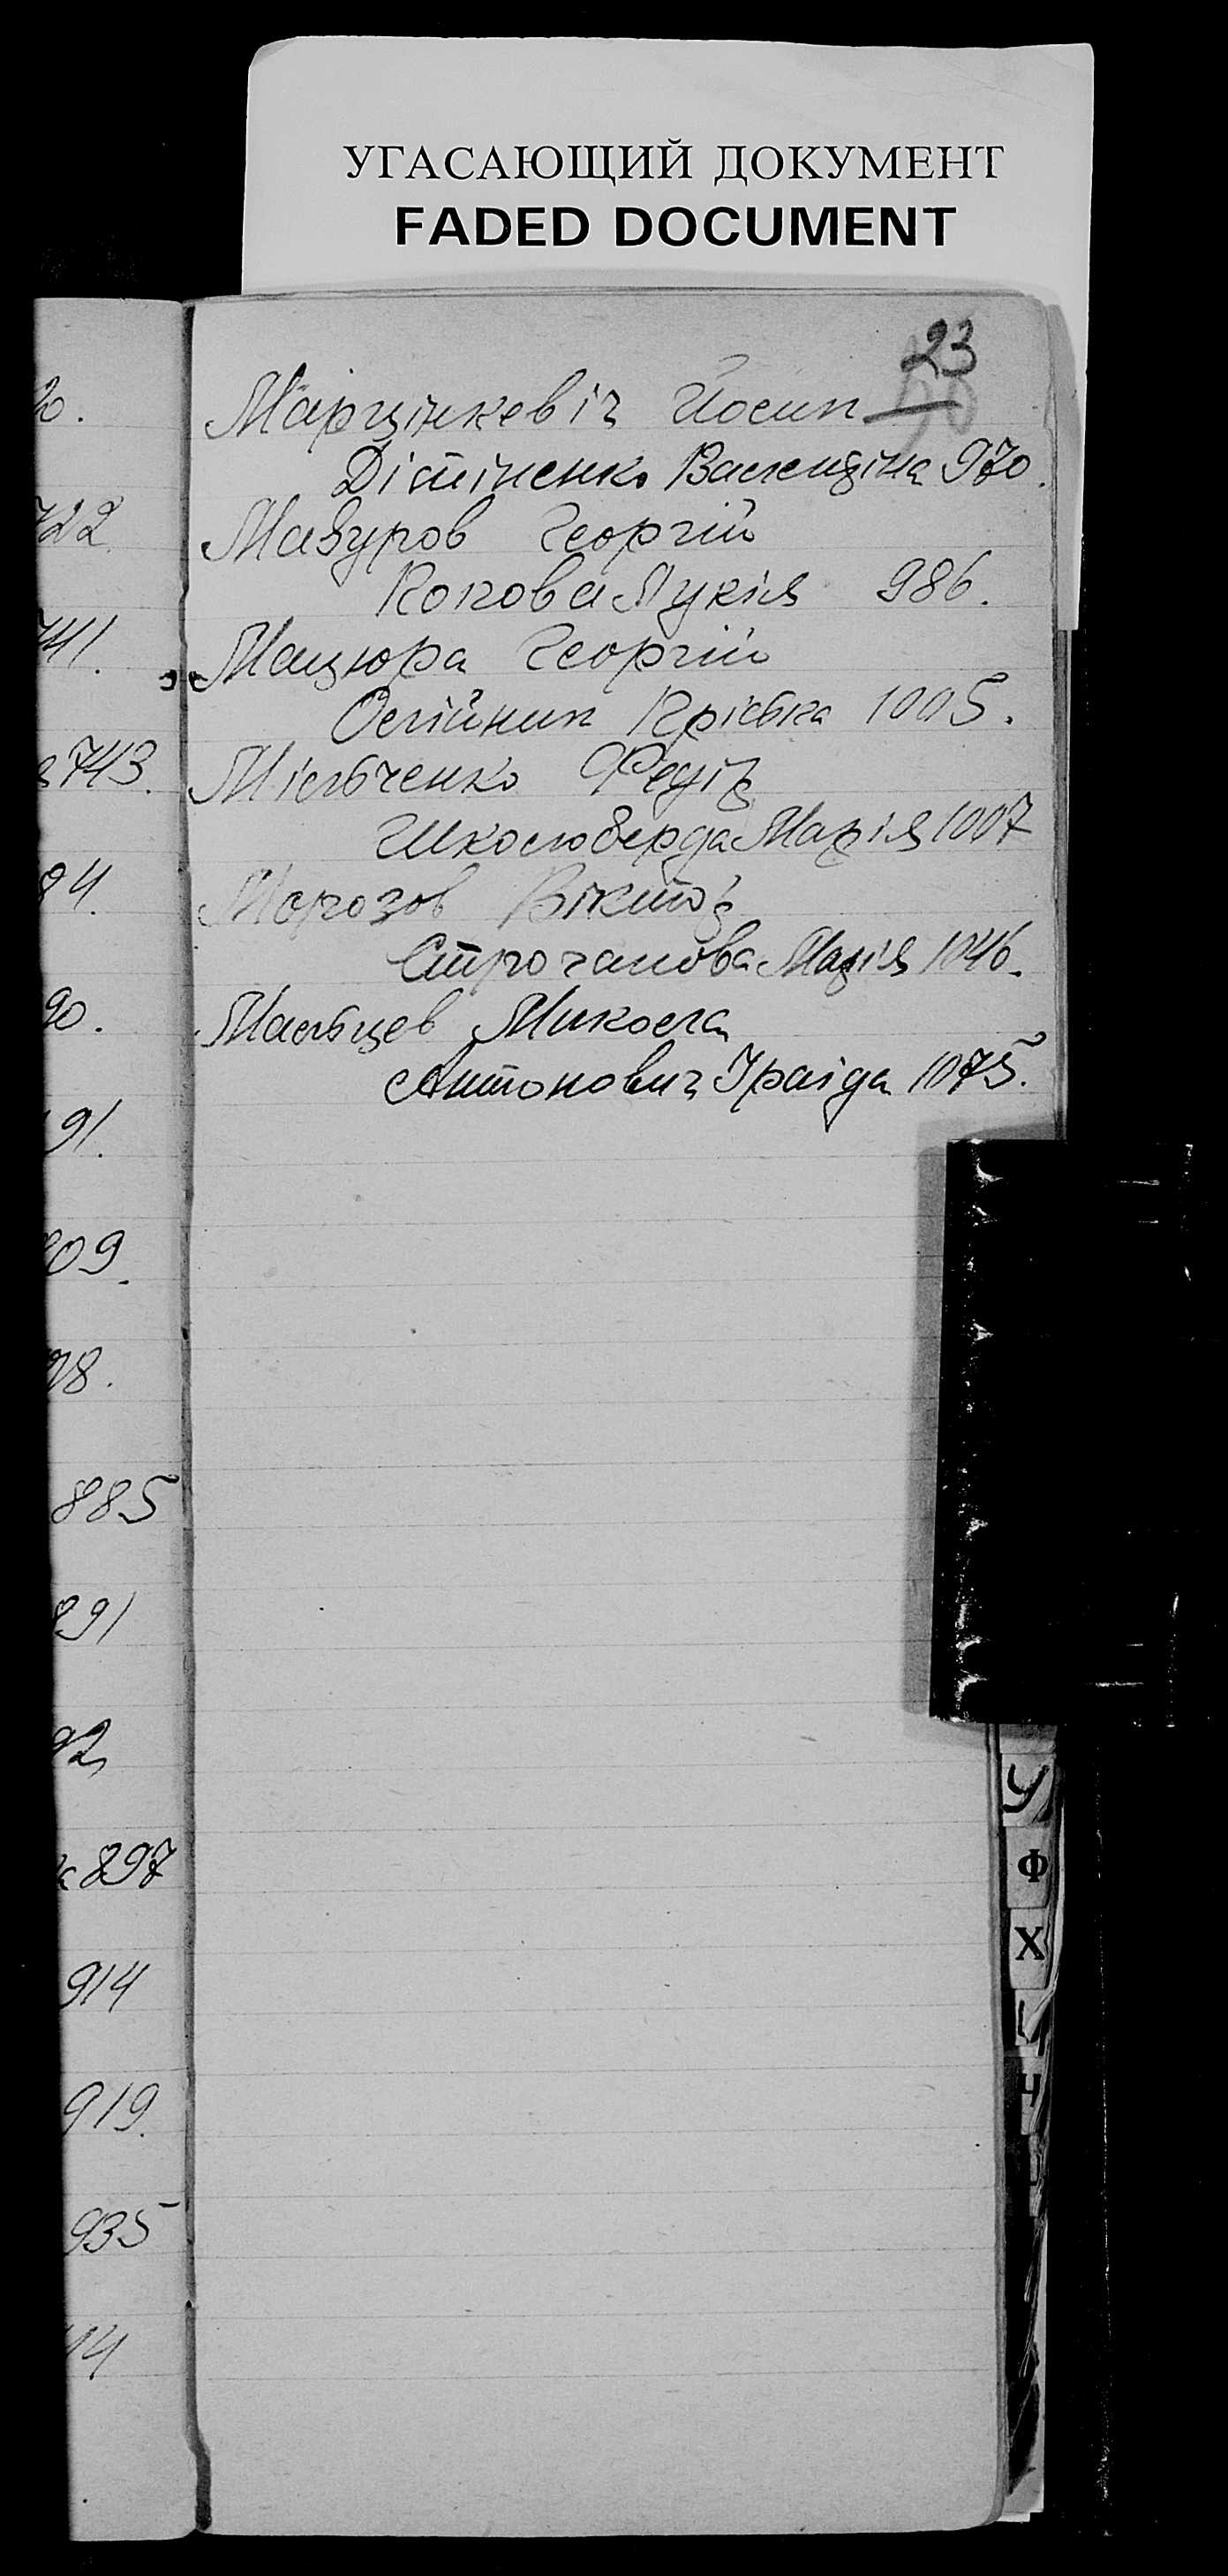 УГАСАЮЩИЙ ДОКУМЕНТ
FADED DOCUMENT
23
Марцінкевіч Йосип
Дітіненко Валентіна 970.
Мазуров Георгій
Попова Лукія 986.
Мацюра Георгій
Олійник Пріська 1005.
Мільченко Федір
Школюберда Марія 1007
Морозов Віктор
Строганова Марія 1046.
Мальцев Микола
Антонович Іраіда 1075.
722
741.
743.
84.
90.
91.
809.
98.
885
891
92
897
914
919.
935
44
У
Ф
Х
Ц
Ч